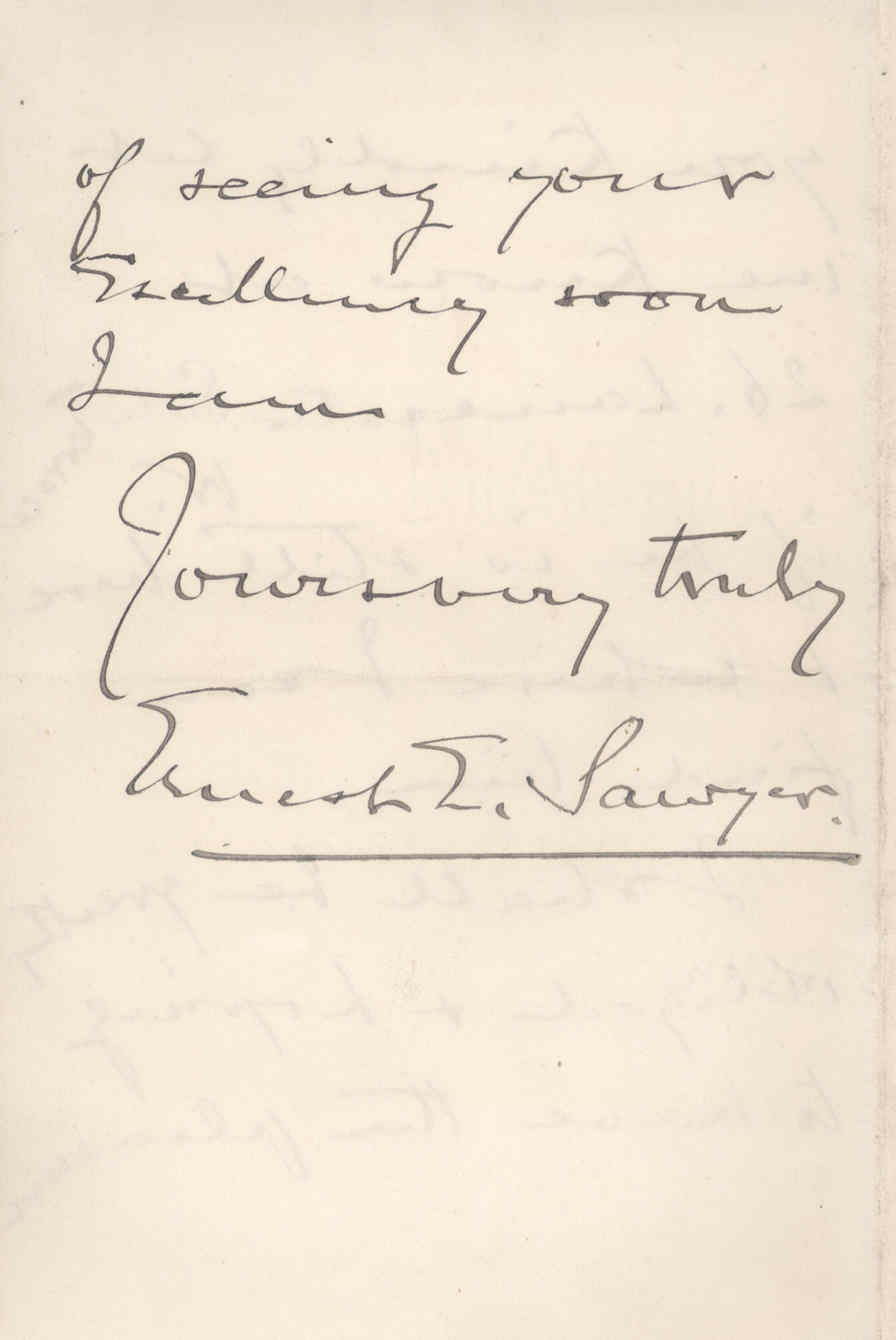 of seeing your
Excellency soon
I am
Yours very truly
Ernest E. Sawyer.